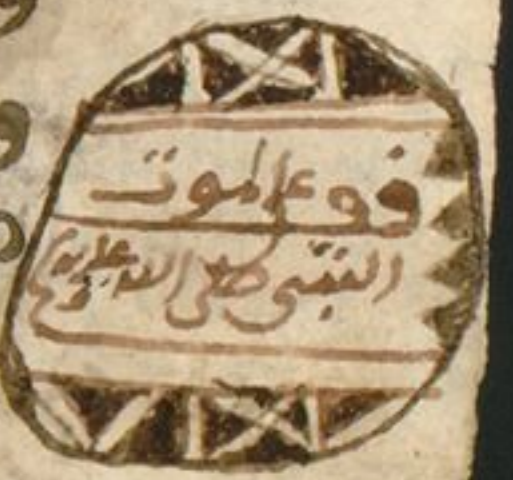 الموت
النبي صلى الله عليه وسلم